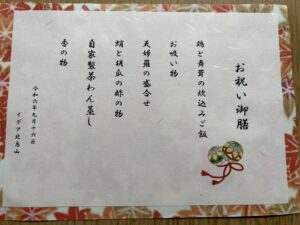 お祝い御膳
鶏と舞茸の炊込みご飯
お吸い物
天婦羅の盛合せ
蛸と胡瓜の酢の物
自家製茶わん蒸し
香の物
令和六年九月十六日
イデア北烏山